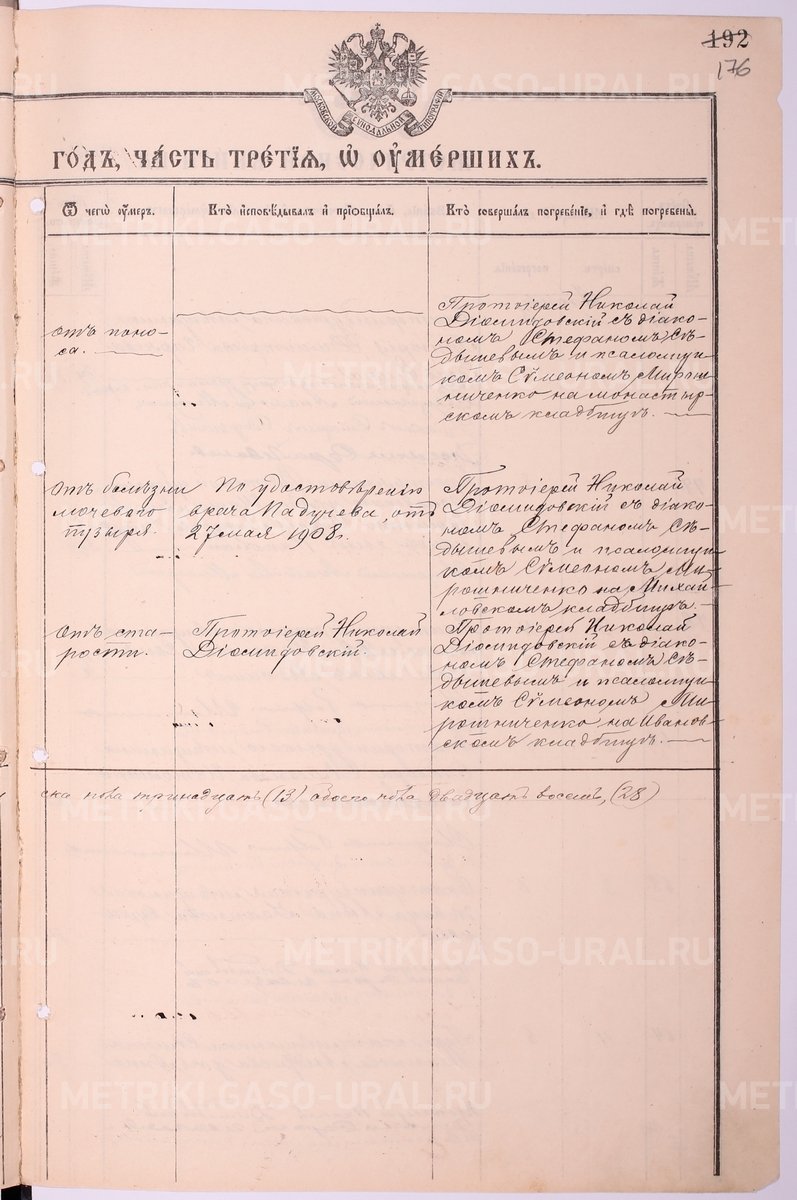 192
176
МОСКОВСКОЙ СѴНОДАЛЬНОЙ ТИПОГРАФІИ
ГО́ДЪ, ЧА́СТЬ ТРЕ́ТЇѦ, Ѽ ОУ҆МЕ́РШИХЪ.
Ѿ чегѡ̀ оу҆́меръ.
Кто̀ и҆сповѣ́дывалъ и҆ прїѡбща́лъ.
Кто̀ соверша́лъ погребе́нїе, и҆ гдѣ̀ погребены̀.
отъ поно-
са.
Протоіерей Николай
Діомидовскій съ діако-
номъ Стефаномъ Сѣ-
дышевымъ и псаломщи-
комъ Сѵмеономъ Мирош-
ниченко на монастыр-
скомъ кладбищѣ.
Отъ болѣзни
мочевого
пузыря.
По удостовѣренію
врача Падучева, отъ
27 мая 1908 г.
Протоіерей Николай
Діомидовскій съ діако-
номъ Стефаномъ Сѣ-
дышевымъ и псаломщи-
комъ Сѵмеономъ Ми-
рошниченко на Михай-
ловскомъ кладбищѣ.
Отъ ста-
рости.
Протоіерей Николай
Діомидовскій.
Протоіерей Николай
Діомидовскій съ діако-
номъ Стефаномъ Сѣ-
дышевымъ и псаломщи-
комъ Сѵмеономъ Ми-
рошниченко на Иванов-
скомъ кладбищѣ.
ска пола тринадцать (13) обоего пола двадцать восемь, (28)
METRIKI.GASO-URAL.RU